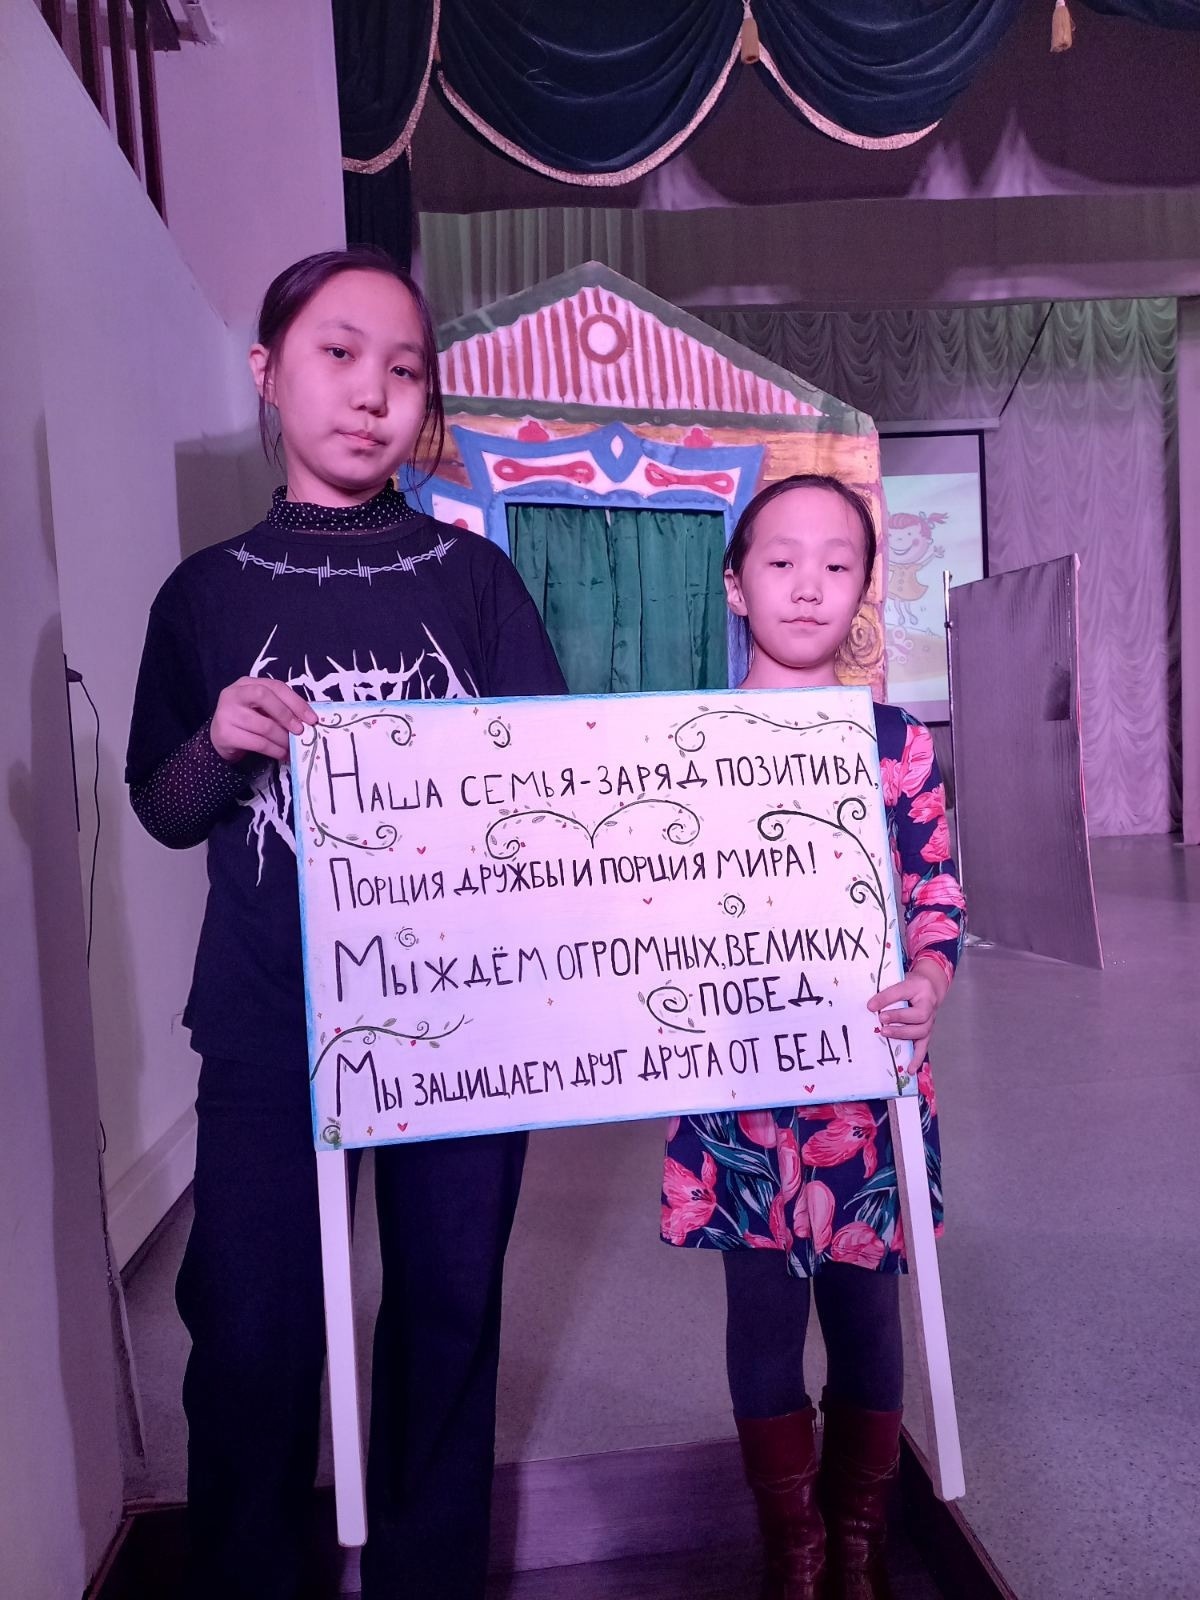 Наша семья-заряд позитива,
Порция дружбы и порция мира!
Мы ждём огромных, великих
побед,
Мы защищаем друг друга от бед!